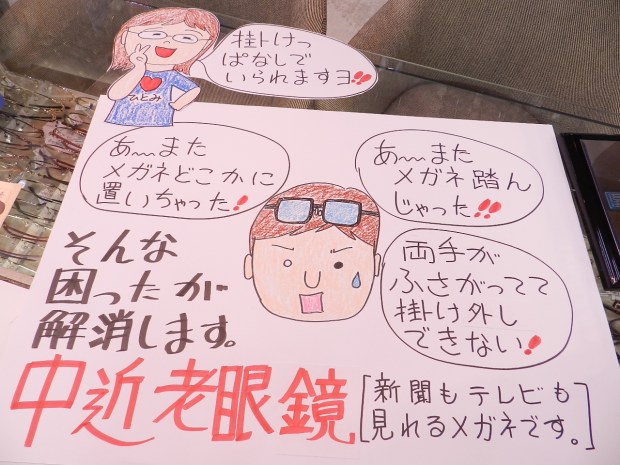 掛けっ
ぱなしで
いられますヨ!!
ひとみ
あ〜また
メガネどこかに
置いちゃった!
あ〜また
メガネ踏ん
じゃった!!
両手が
ふさがってて
掛け外し
できない!
そんな
困ったが
解消します。
中近老眼鏡
[新聞もテレビも
見れるメガネです。]